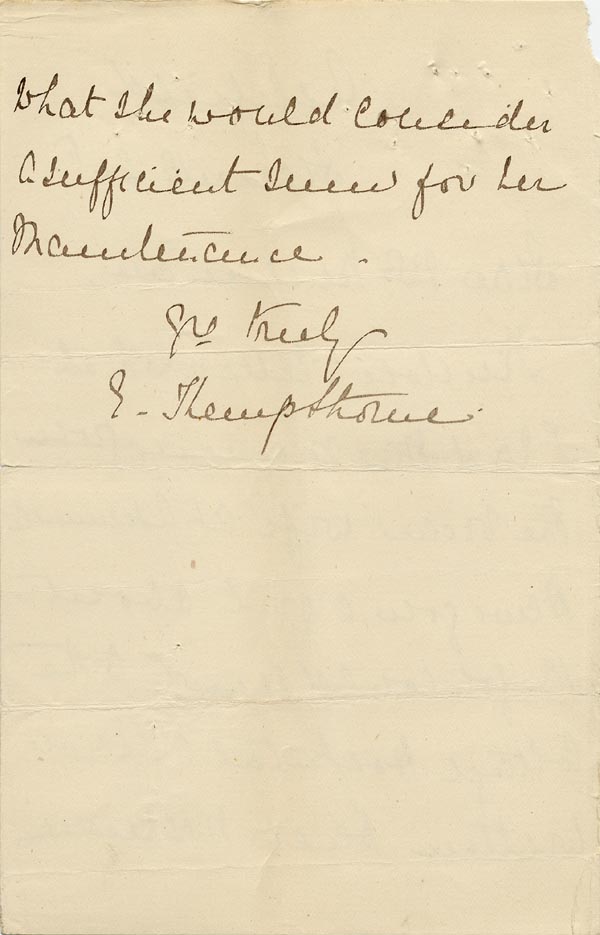 What she would consider
a sufficient sum for her
Maintenance.
Yrs truly
E. Kempthorne.